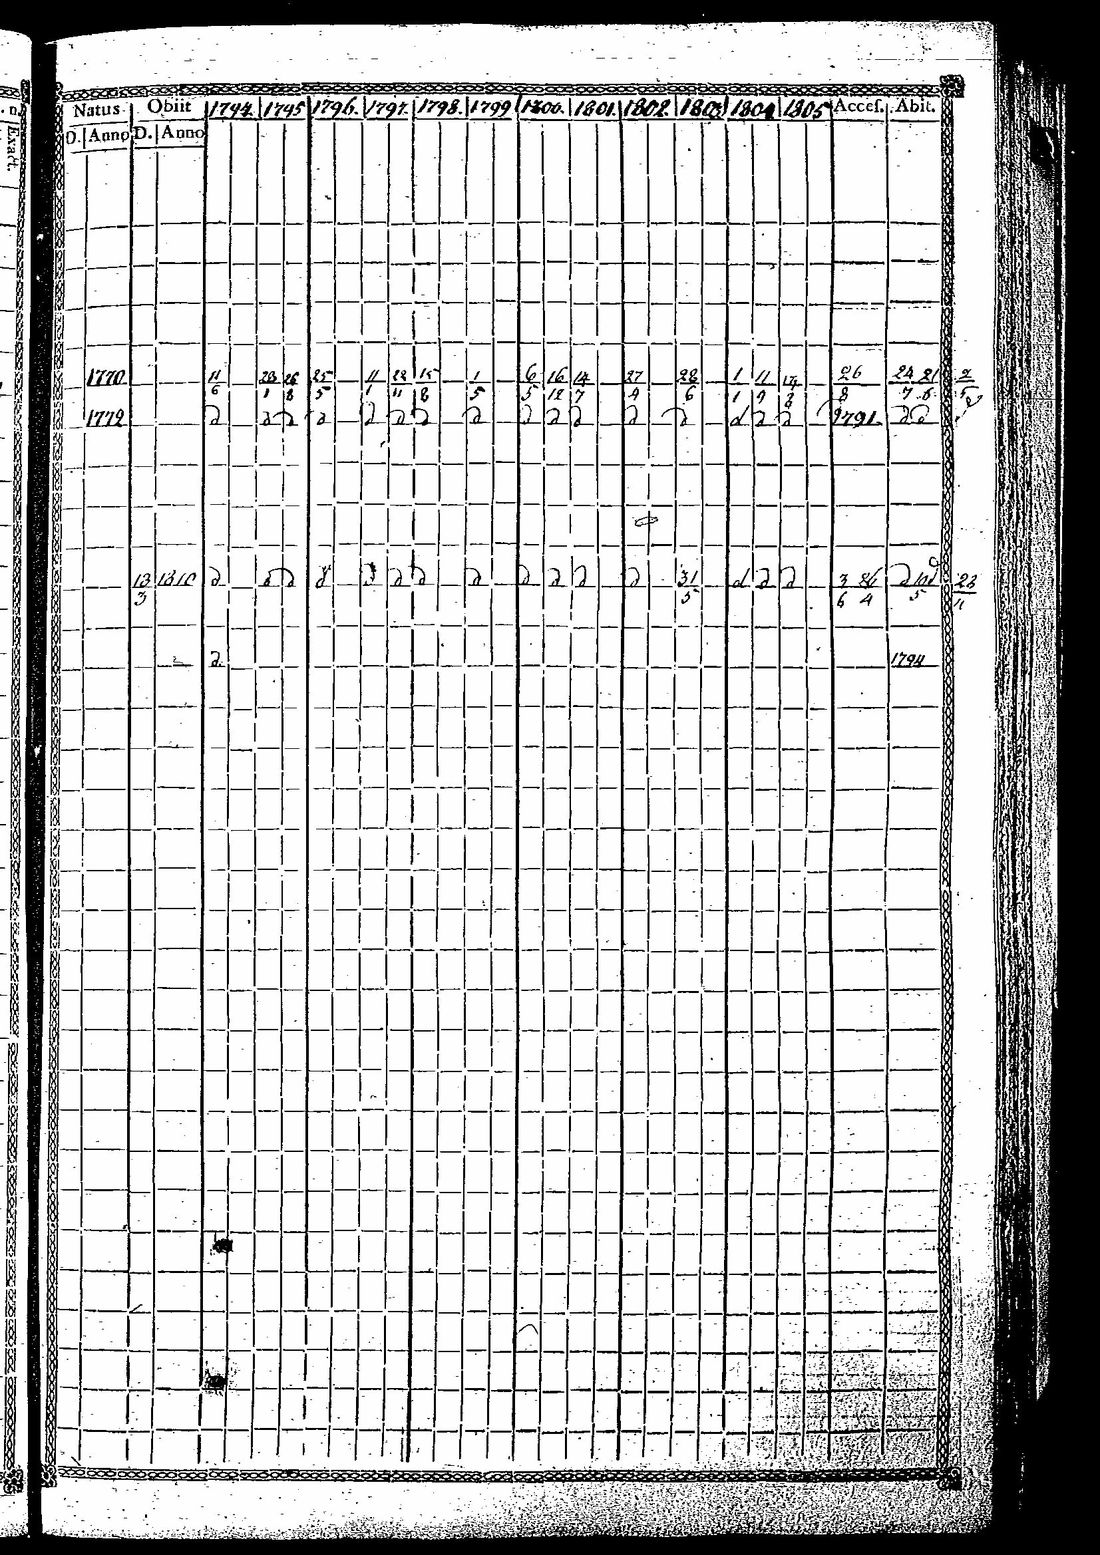 Natus Obiit 1794. 1795 1796. 1797. 1798. 1799 1800. 1801. 1802. 1803 1804 1805 Accef. Abit.
D. Anno D. Anno
Exact.
1770 11/6 23/1 26/8 25/5 11/1 22/11 15/8 1/5 6/5 16/12 14/7 27/4 28/6 1/1 11/9 26/8 24/7 21/6
1772 d d d d d d d d d d d d d d d d 1791 d d
13/3 1810 d d d d d d d d d d d 31/5 d d d 3/6 26/4 d 10/5 d 22/11
d. 1794